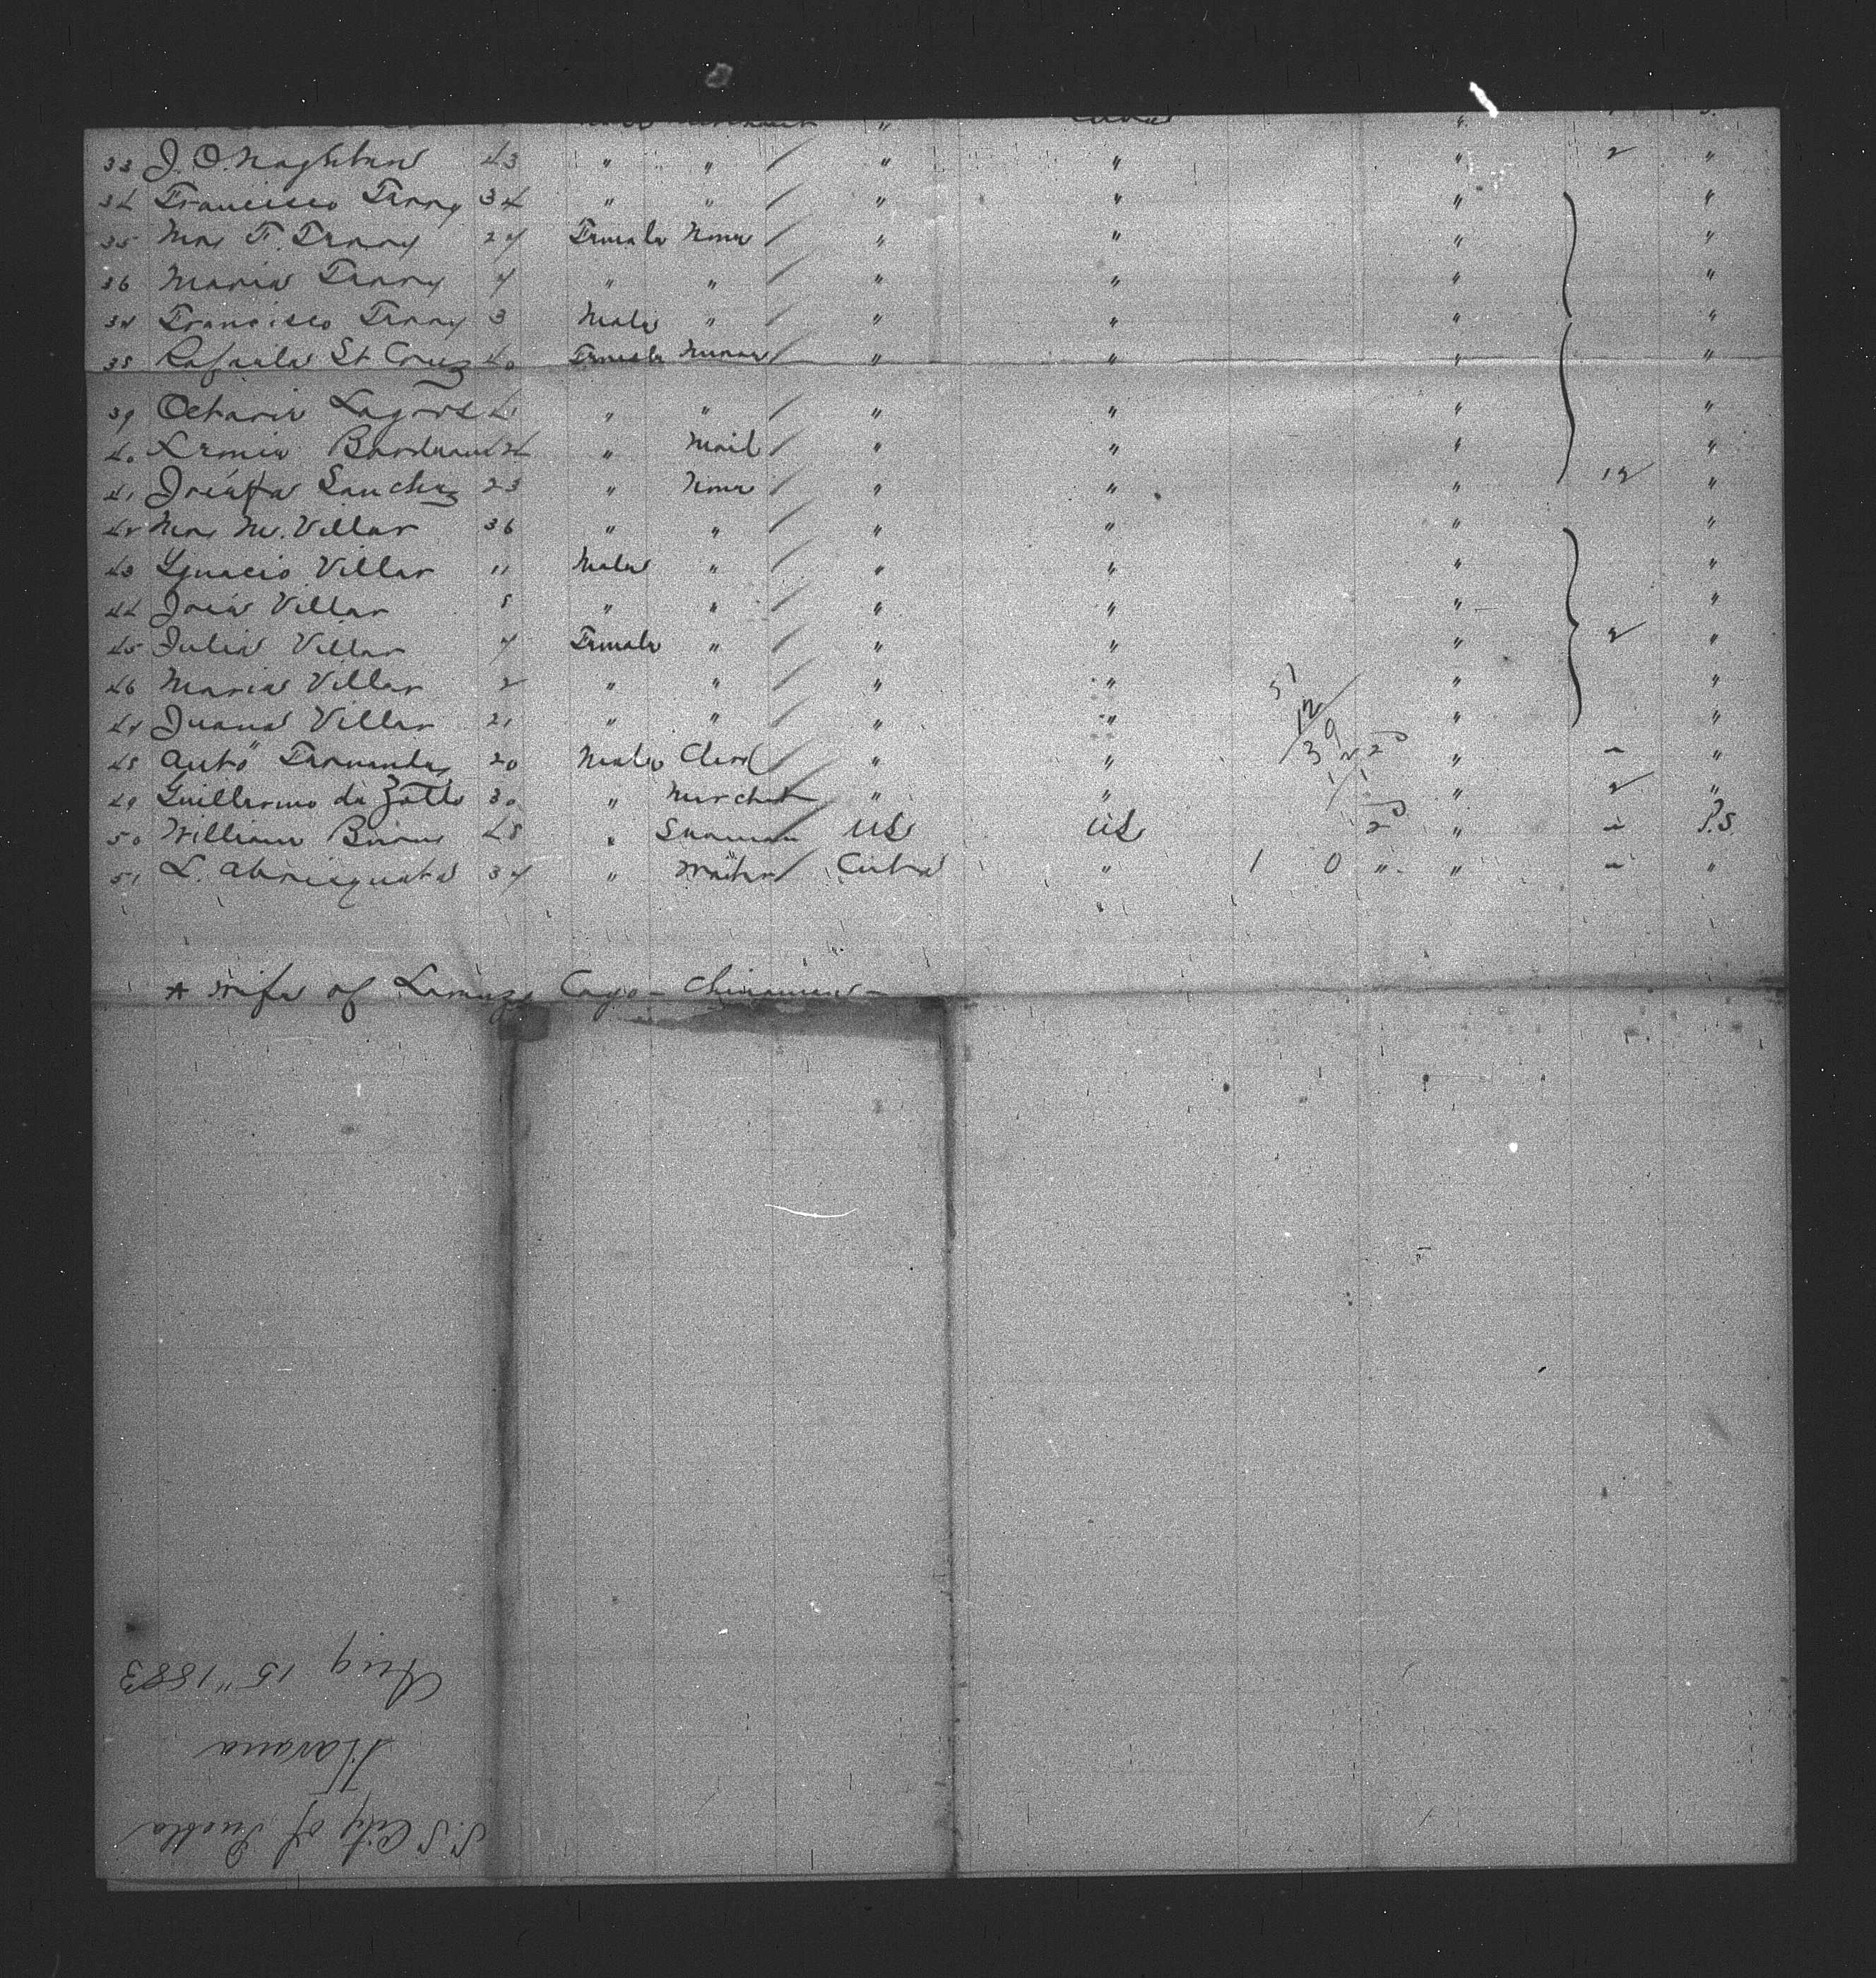 33 J. O. Naghten 43 " " " " " 2 "
34 Francisco Terry 34 " " " " " "
35 Mrs F. Terry 27 Female None " " " "
36 Maria Terry 7 " " " " " "
37 Francisco Terry 3 Male " " " " "
38 Rafaela St Cruz 40 Female Nurse " " " "
39 Octavia 41 " " " " " "
40 24 " Maid " " " "
41 Josefa Sanchez 23 " None " " " 12 "
42 Mrs M. Villar 36 " " " " " "
43 Ygnacio Villar 11 Male " " " " "
44 José Villar 8 " " " " " "
45 Julia Villar 7 Female " " " " 2 "
46 Maria Villar 2 " " " " " "
47 Juana Villar 21 " " " " " "
51
12
39
48 Anto Fernandez 20 Male Clerk " " 2d " - "
49 Guillermo de Zaldo 30 " Merchant " " " 2 "
50 William 48 " Seaman US US 2d " - P.S.
51 L. 37 " Waiter Cuba " 1 0 " " - "
* Wife of Cayo - Chinaman -
S.S City of Puebla
Havana
Aug 15" 1883